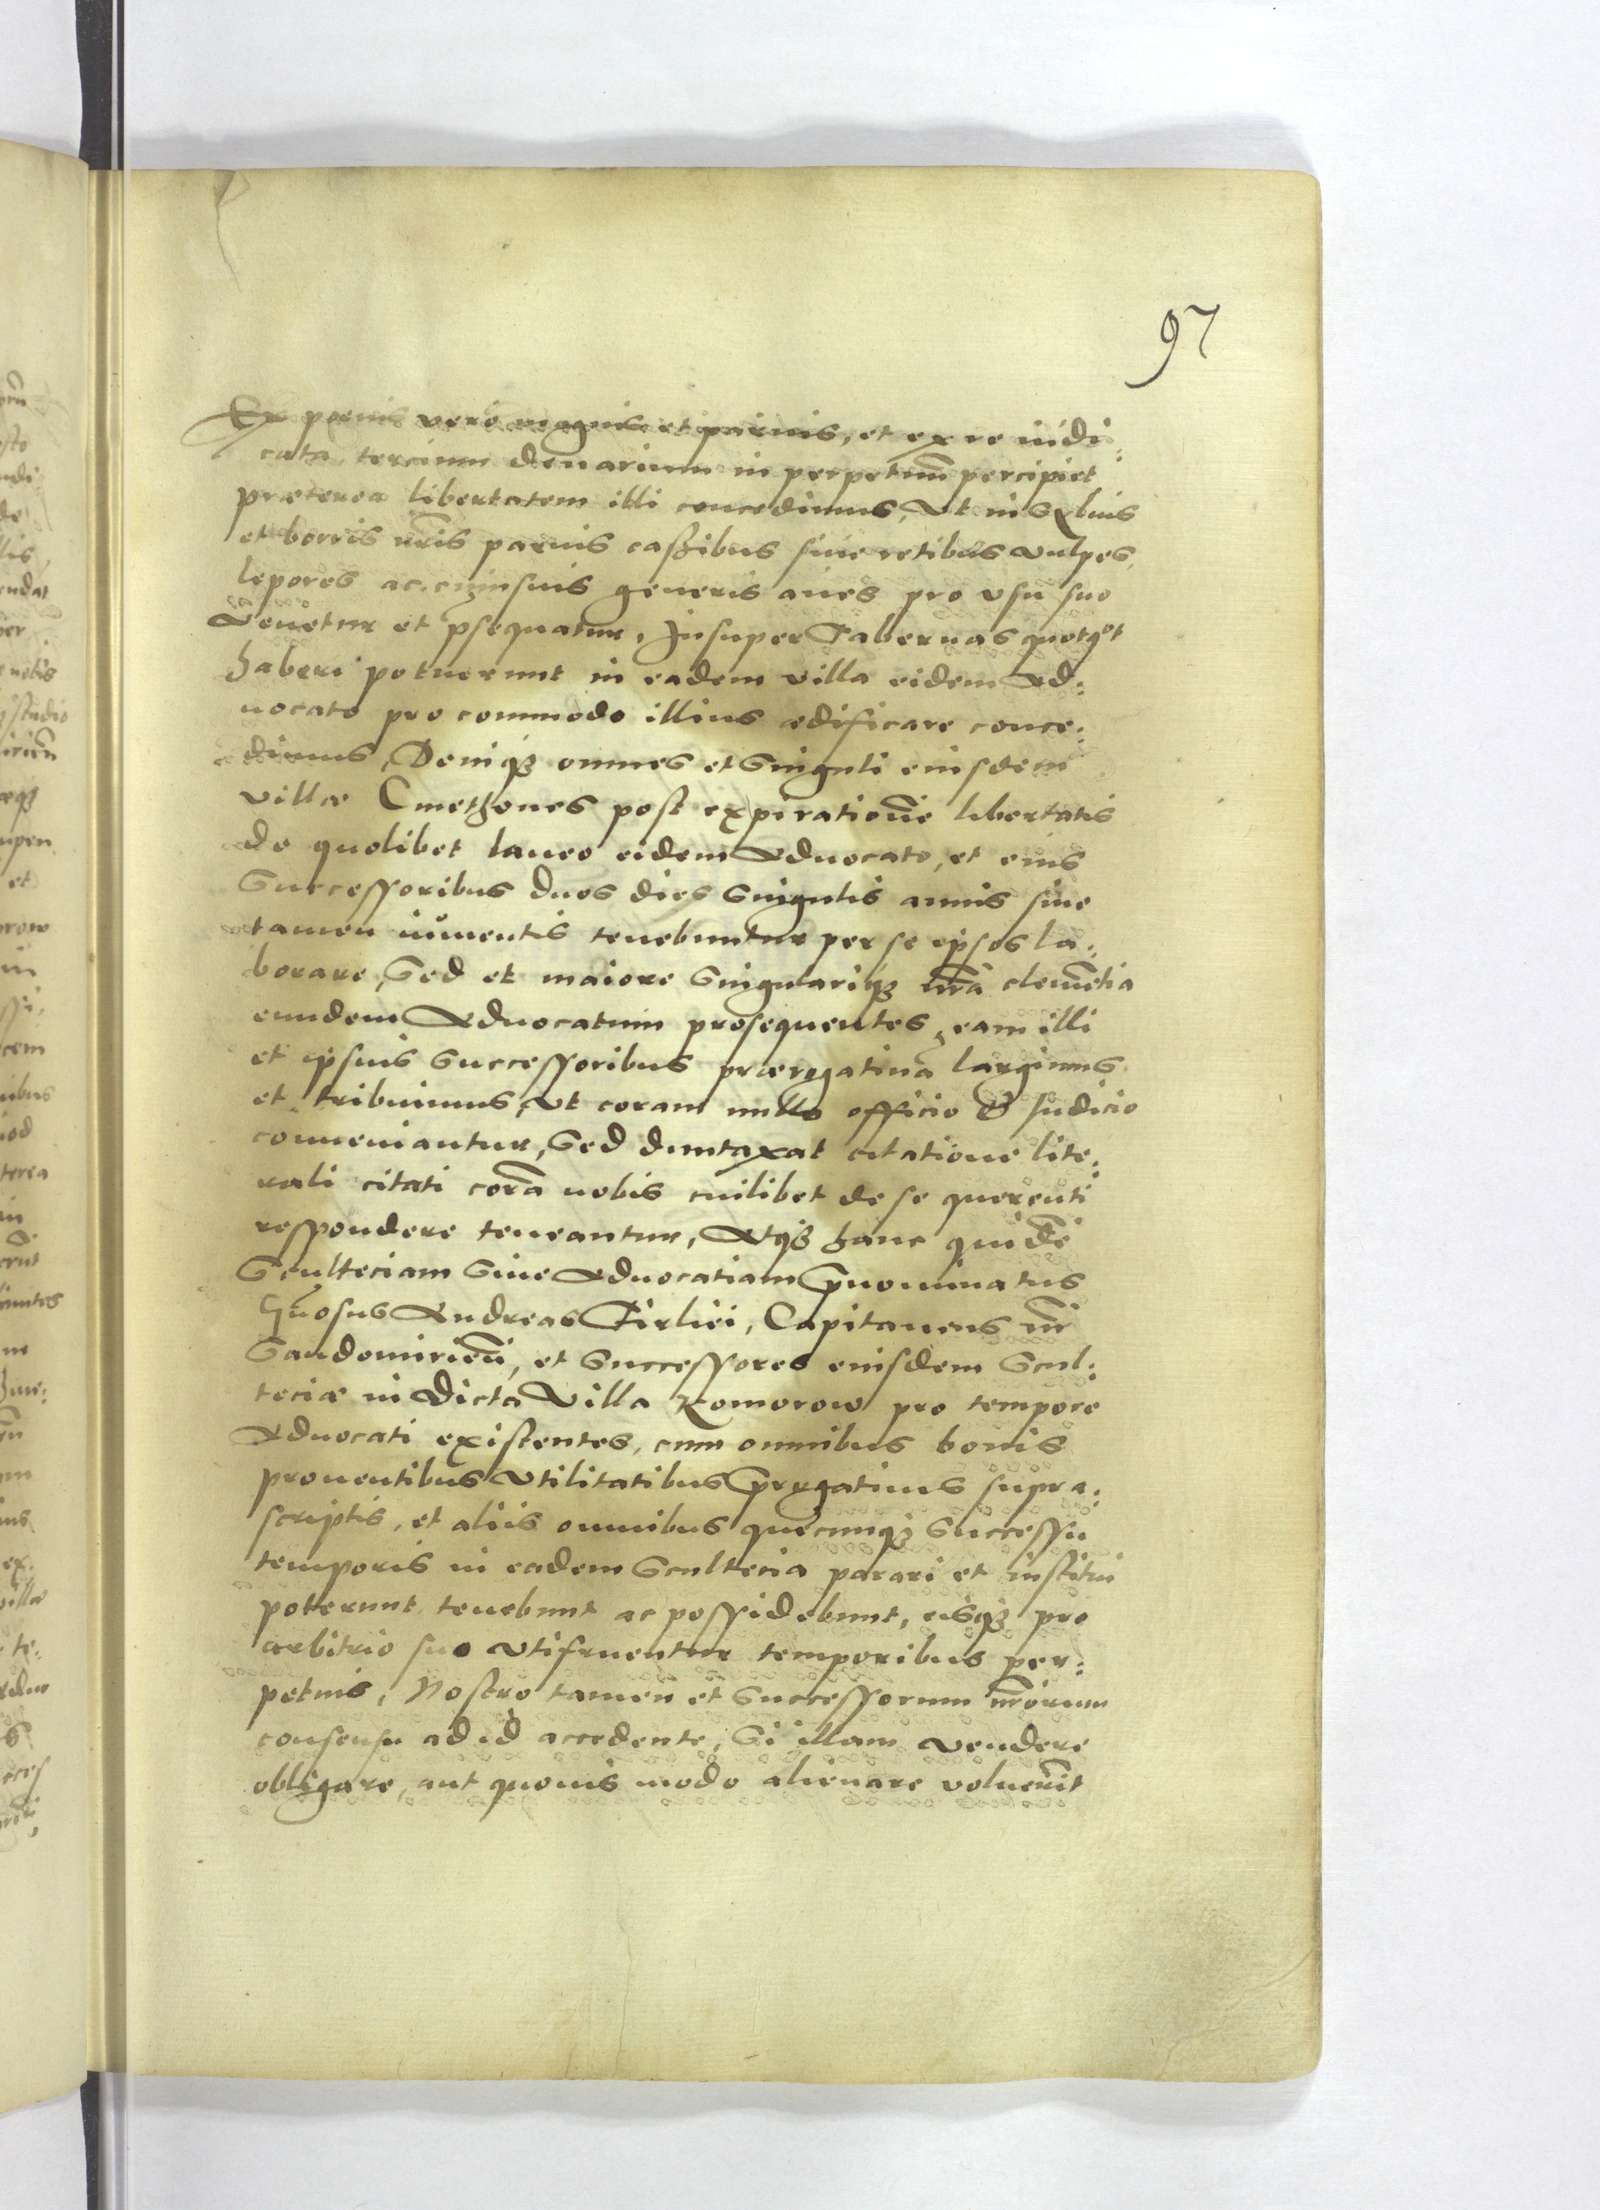 97
Ex poenis vero magnis et paruis, et ex re iudi:
cata tercium denarium in perpetuũ percipiet
præterea libertatem illi concedimus, Vt in Syluis
et borris nr̃is paruis caßibus siue retibus vulpes,
lepores ac cuiusuis generis aues pro vsu suo
Venetur et ꝑsequatur, Insuper Tabernas quotqͦt
haberi potuerunt in eadem villa eidem Ad:
uocato pro commodo illius ædificare conce:
dimus, Deniqꝫ omnes et Singuli eiusdem
villæ Cmethones post expirationẽ libertatis
de quolibet laneo eidem Aduocato, et eius
Successoribus duos dies Singulis annis sine
tamen iumentis tenebuntur per se ipsos la:
borare, Sed et maiore Singulariqꝫ nr̃a clemẽtia
eundem Aduocatum prosequentes, eam illi
et ipsius Successoribus prærogatiuã largimus
et tribuimus, Vt coram nullo officio & Iudicio
conueniantur, Sed duntaxat citatione lite:
rali citati corã nobis cuilibet de se querenti
respondere teneantur, Atqꝫ hanc quidẽ
Scultetiam Siue Aduocatiam p̃nominatus
Gñosus Andreas Firliei, Capitaneus nr̃
Sandomirieñ, et Successores eiusdem Scul:
teciæ in dicta Villa Komorow pro tempore
Aduocati existentes, cum omnibus bonis
prouentibus Vtilitatibus p̃rogatiuis supra:
scriptis, et aliis omnibus quecunqꝫ Successu
temporis in eadem Scultecia parari et institui
poterunt tenebunt ac possidebunt, eisqꝫ pro
arbitrio suo Vtifruentur temporibus per:
petuis, Nostro tamen et Successorum nr̃orum
consensu ad id accedente, Si illam vendere
obligare, aut quouis modo alienare voluerĩt